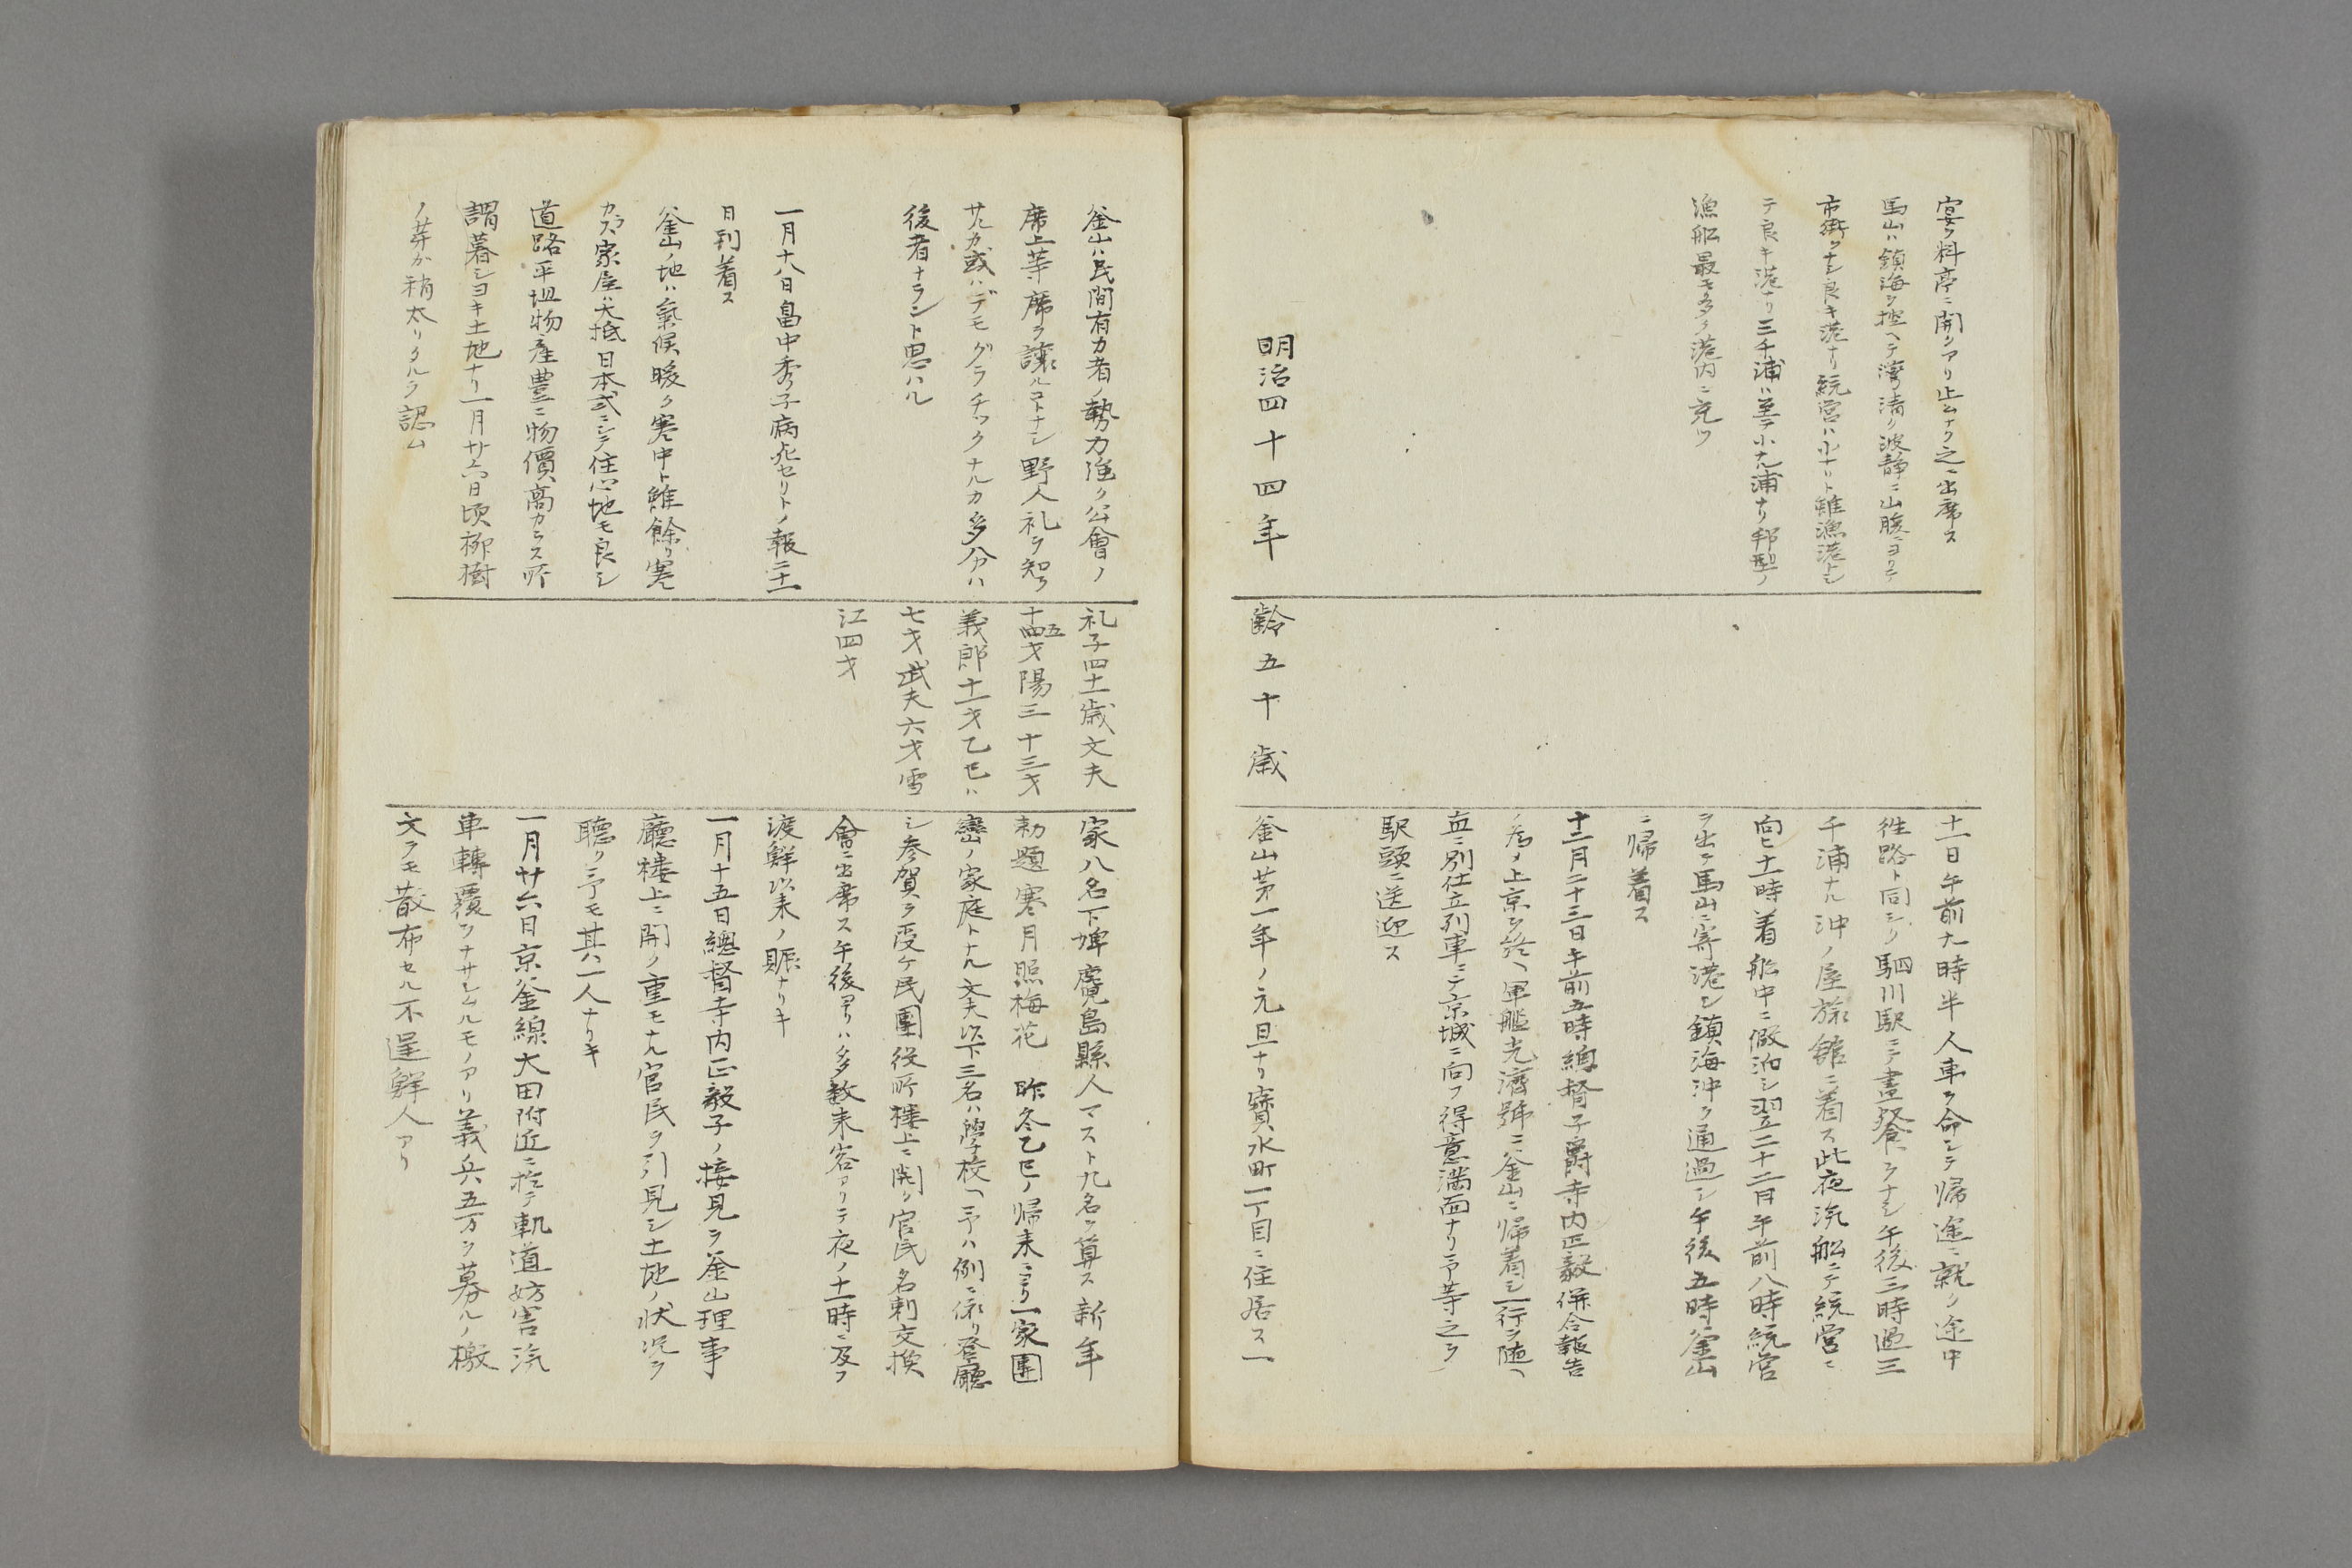 宴ヲ料亭ニ開クアリ止ムナク之ニ出席ス
馬山ハ鎮海ヲ控ヘテ湾清ク波静ニ山腹ニヨリテ
市街ヲナシ良キ港ナリ統営ハ小ナリト雖漁港トシ
テ良キ港ナリ三千浦ハ至テ小ナル浦ナリ邦型ノ
漁船最モ多ク港内ニ充ツ
十一日午前九時半人車ヲ命シテ帰途ニ就ク途中
往路ト同シク駟川駅ニテ昼餐ヲナシ午後三時過三
千浦ナル沖ノ屋旅館ニ着ス此夜汽船ニテ統営ニ
向ヒ十一時着船中ニ假泊シ翌二十二日午前八時統営
ヲ出テ馬山ニ寄港シ鎮海沖ヲ通過シ午後五時釜山
ニ帰着ス
十二月二十三日午前五時總督子爵寺内正毅併合報告
ノ為メ上京シ終ヘ軍艦光濟號ニ釜山ニ帰着シ一行ヲ随ヘ
直ニ別仕立列車ニテ京城ニ向フ得意満面ナリ予等之ヲ
駅頭ニ送迎ス
明治四十四年
齢五十歳
釜山第一年ノ元旦ナリ寶水町一丁目ニ住居ス一
釜山ハ民間有力者ノ勢力強ク公會ノ
席上等席ヲ譲ルコトナシ野人礼ヲ知ラ
サルカ或ハデモグラチックナルカ多分ハ
後者ナラント思ハル
一月十八日畠中秀子病死セリトノ報二十一
日到着ス
釜山ノ地ハ氣候暖ク寒中ト雖餘リ寒
カラス家屋ハ大抵日本式ニシテ住心地モ良シ
道路平坦物産豊ニ物價高カラス所
謂暮シヨキ土地ナリ一月廿六日頃柳樹
ノ芽カ稍太リタルヲ認ム
礼子四十一歳文夫
十四五才陽三十三才
義郎十一才乙巳ハ
七才武夫六才雪
江四才
家八名下婢鹿児島縣人マスト九名ヲ算ス新年
勅題寒月照梅花　昨冬乙巳ノ帰来ニヨリ一家團
欒ノ家庭トナル文夫以下三名ハ學校ヘ予ハ例ニ依リ登廳
シ参賀ヲ受ケ民團役所楼上ニ開ク官民名刺交換
會ニ出席ス午後ヨリハ多数来客アリテ夜ノ十一時ニ及フ
渡鮮以来ノ賑ナリキ
一月十五日總督寺内正毅子ノ接見ヲ釜山理事
廳楼上ニ開ク重モナル官民ヲ引見シ土地ノ状況ヲ
聴ク予モ其ハ一人ナリキ
一月廿六日京釜線大田附近ニ於テ軌道妨害汽
車轉覆ヲナサシムルモノアリ義兵五万ヲ募ルノ檄
文ヲモ散布セル不逞鮮人アリ